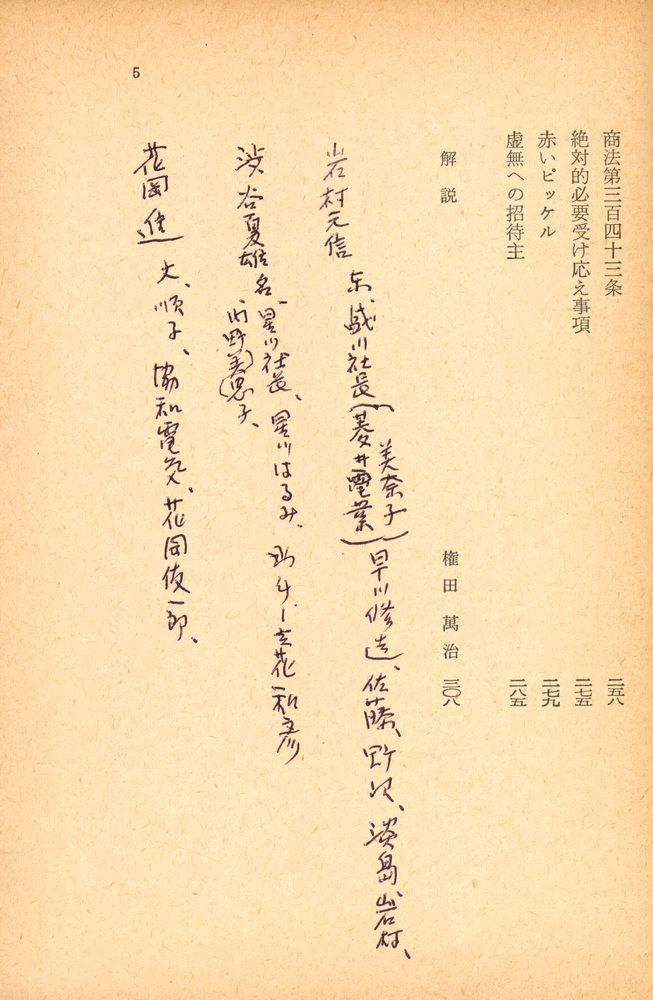 商法第三百四十三条 二五八
絶対的必要受け応え事項 二七五
赤いピッケル 二七九
虚無への招待主 二八五
解説 権田萬治 三〇八
岩村元信 東、 川社長(菱井電業)早川修造、佐藤、野沢、淡島岩村、
美奈子
渋谷夏雄 名、星川社長、星川はるみ、 立花和彦
内野美恵子、
花岡進 大、順子、協和電気、花岡俊一郎、
5